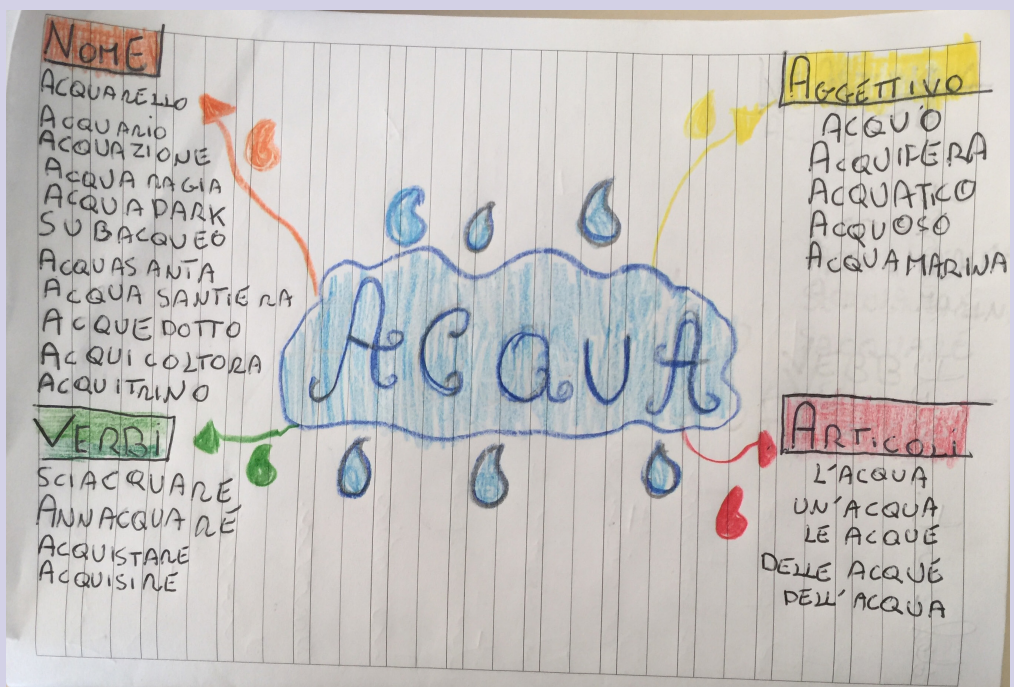 NOME
ACQUARELLO
ACQUARIO
ACQUAZIONE
ACQUA RAGIA
ACQUA PARK
SUBACQUEO
ACQUASANTA
ACQUA SANTIERA
ACQUEDOTTO
ACQUICOLTORA
ACQUITRINO
VERBI
SCIACQUARE
ANNACQUARE
ACQUISTARE
ACQUISIRE
ACQUA
AGGETTIVO
ACQU'O
ACQUIFERA
ACQUATICO
ACQUOSO
ACQUAMARINA
ARTICOLI
L'ACQUA
UN'ACQUA
LE ACQUE
DELLE ACQUE
DELL'ACQUA